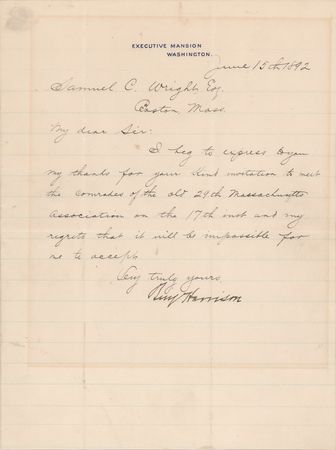 EXECUTIVE MANSION
WASHINGTON.
June 15th 1892
Samuel C. Wright, Esq
Boston Mass.
My dear Sir:
I beg to express to you
my thanks for your kind invitation to meet
the comrades of the old 29th Massachusetts
Association on the 17th inst and my
regrets that it will be impossible for
me to accept.
Very truly yours,
Benj Harrison